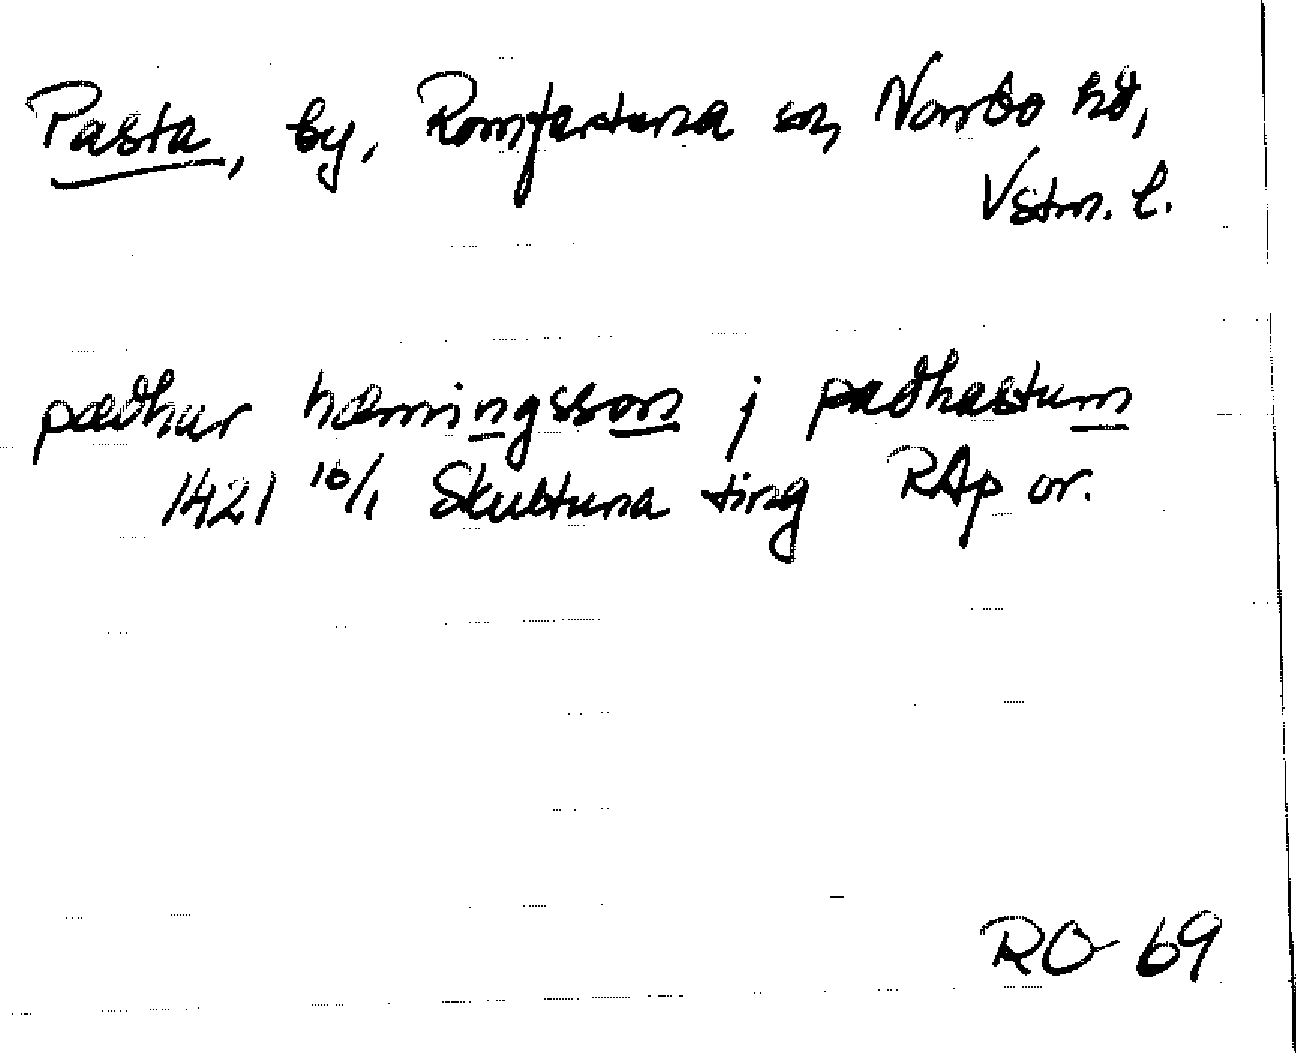 Pasta, by, Romfartuna sn, Norrbo hd,
Vstm. l.
pædhur hæmmingsson j padhastum
1421 16/1 Skultuna ting RAp or.
RO 69